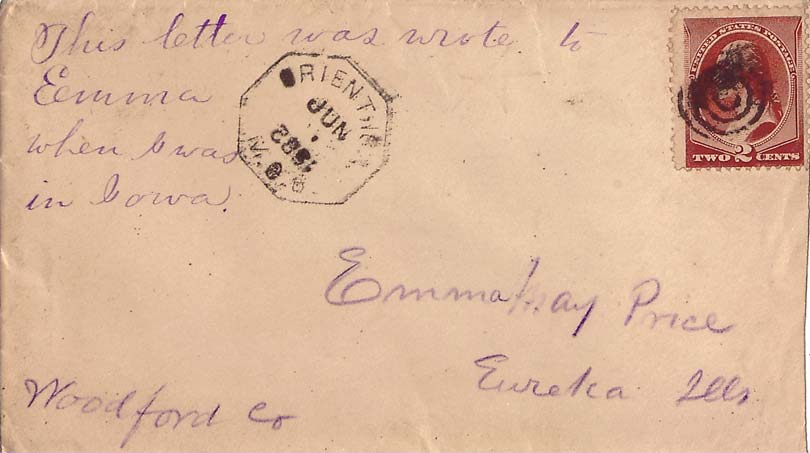 This letter was wrote to
Emma
when I was
in Iowa.
ORIENT
JUN
UNITED STATES POSTAGE
TWO 2 CENTS
Emma May Price
Eureka Ills
Woodford Co